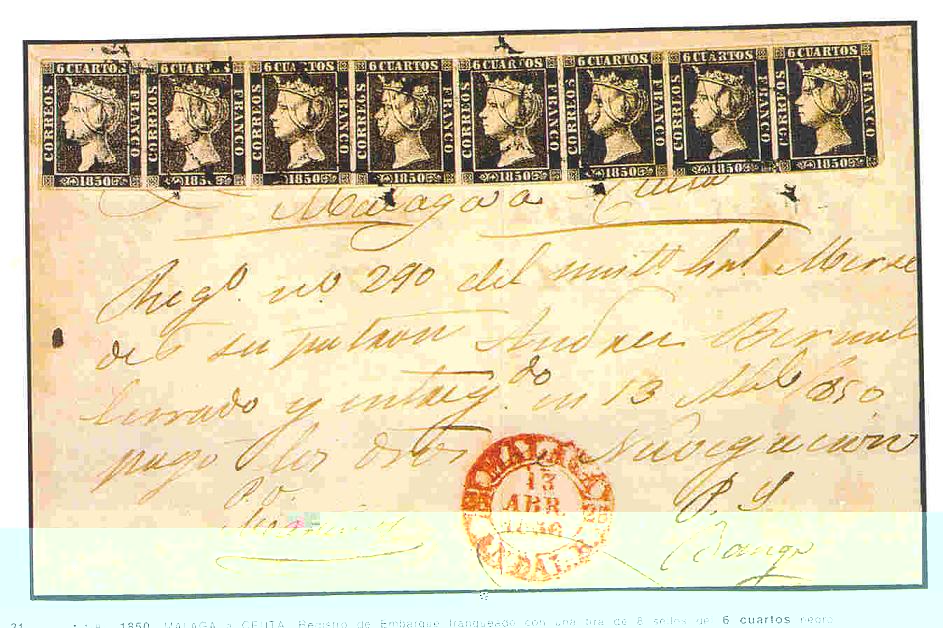 6 CUARTOS 6 CUARTOS 6 CUARTOS 6 CUARTOS 6 CUARTOS 6 CUARTOS 6 CUARTOS 6 CUARTOS
CORREOS FRANCO CORREOS FRANCO CORREOS FRANCO CORREOS FRANCO CORREOS FRANCO CORREOS FRANCO CORREOS FRANCO CORREOS FRANCO
1850 1850 1850 1850 1850 1850 1850 1850
Malaga a Ceuta
Regº. nº. 290 del
de su patron Andres Bernal
cerrado y entregdo. en 13 Abl. 1850
pago los dros Navegacion
P. O.
P. S
MALAGA
13
ABR.
1850
ANDAL. B.
21 1850 MALAGA a CEUTA. Registro de Embarque franqueado con una tira de 8 sellos del 6 cuartos negro